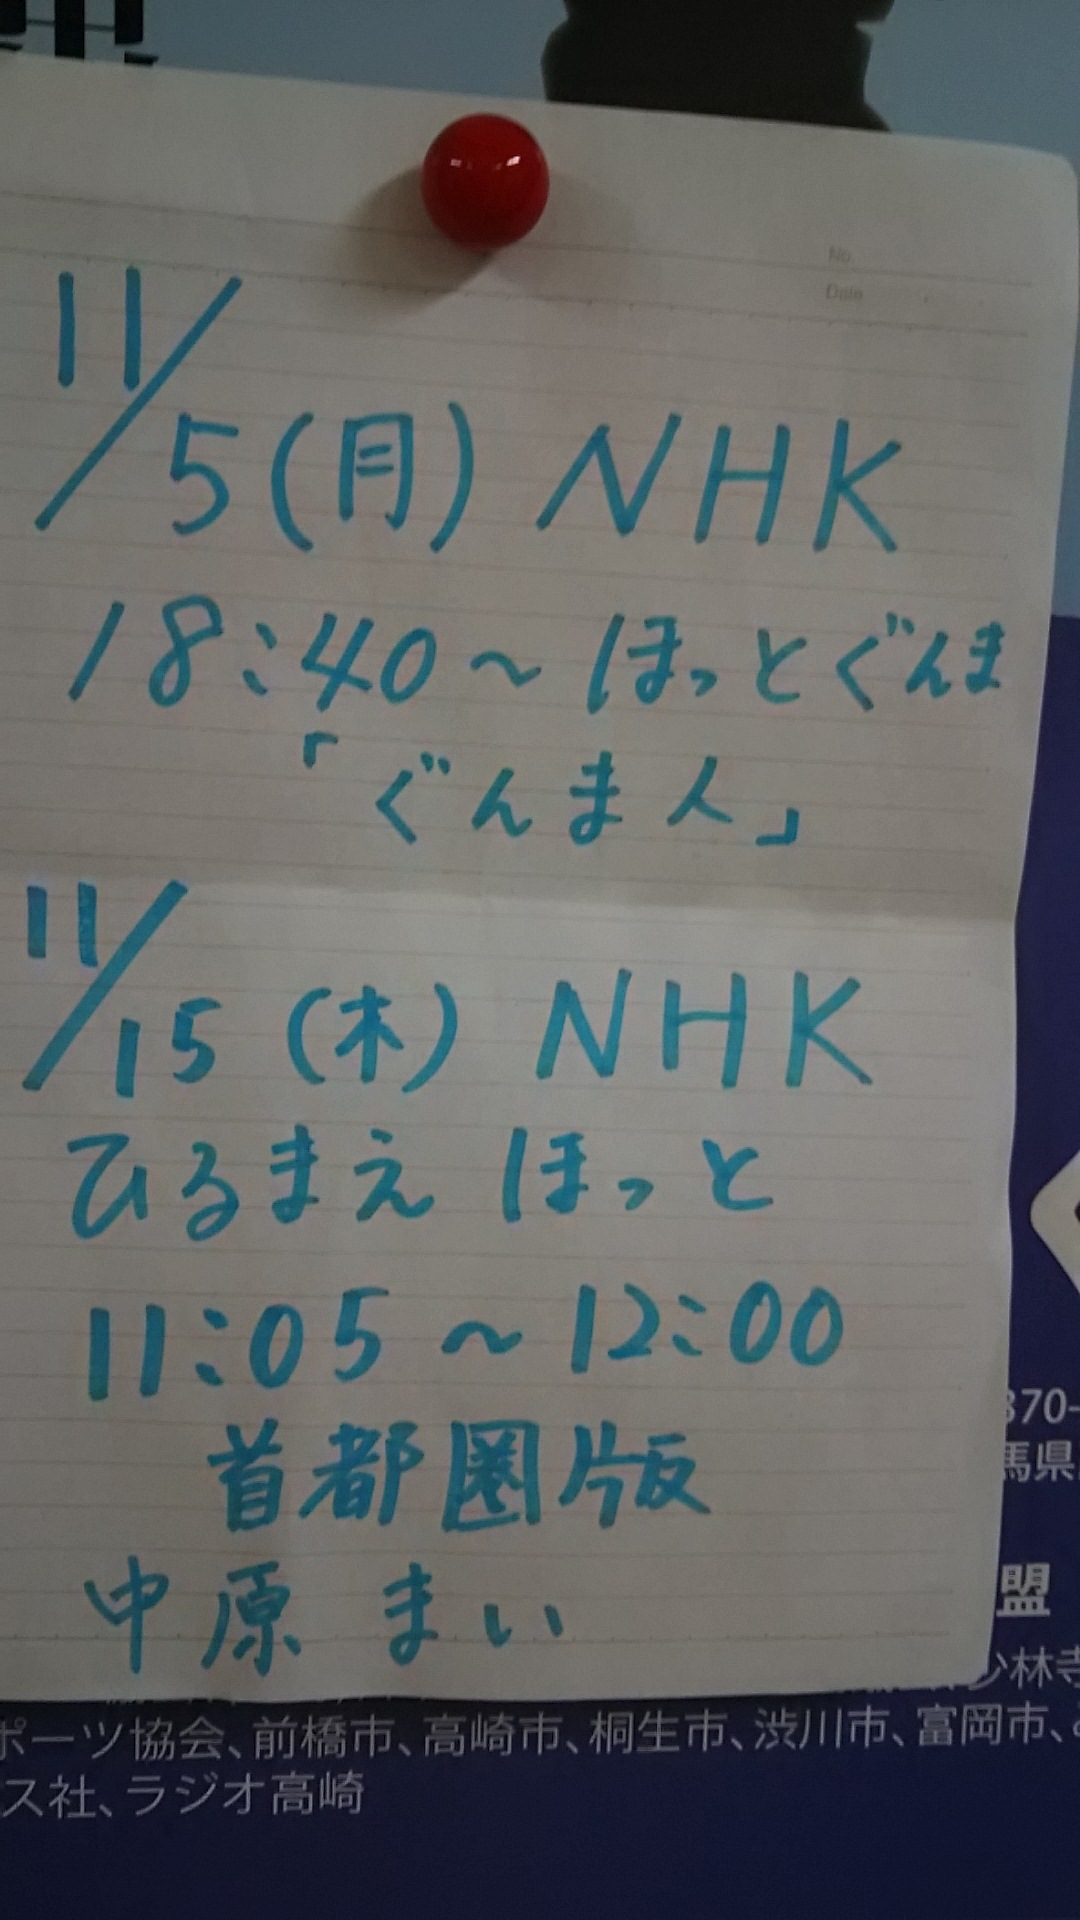 No.
Date
11/5(月) NHK
18:40～ほっとぐんま
「ぐんま人」
11/15(木) NHK
ひるまえ ほっと
11:05～12:00
首都圏版
中原 まい
370-
馬県
盟
少林寺
ポーツ協会、前橋市、高崎市、桐生市、渋川市、富岡市、
ス社、ラジオ高崎